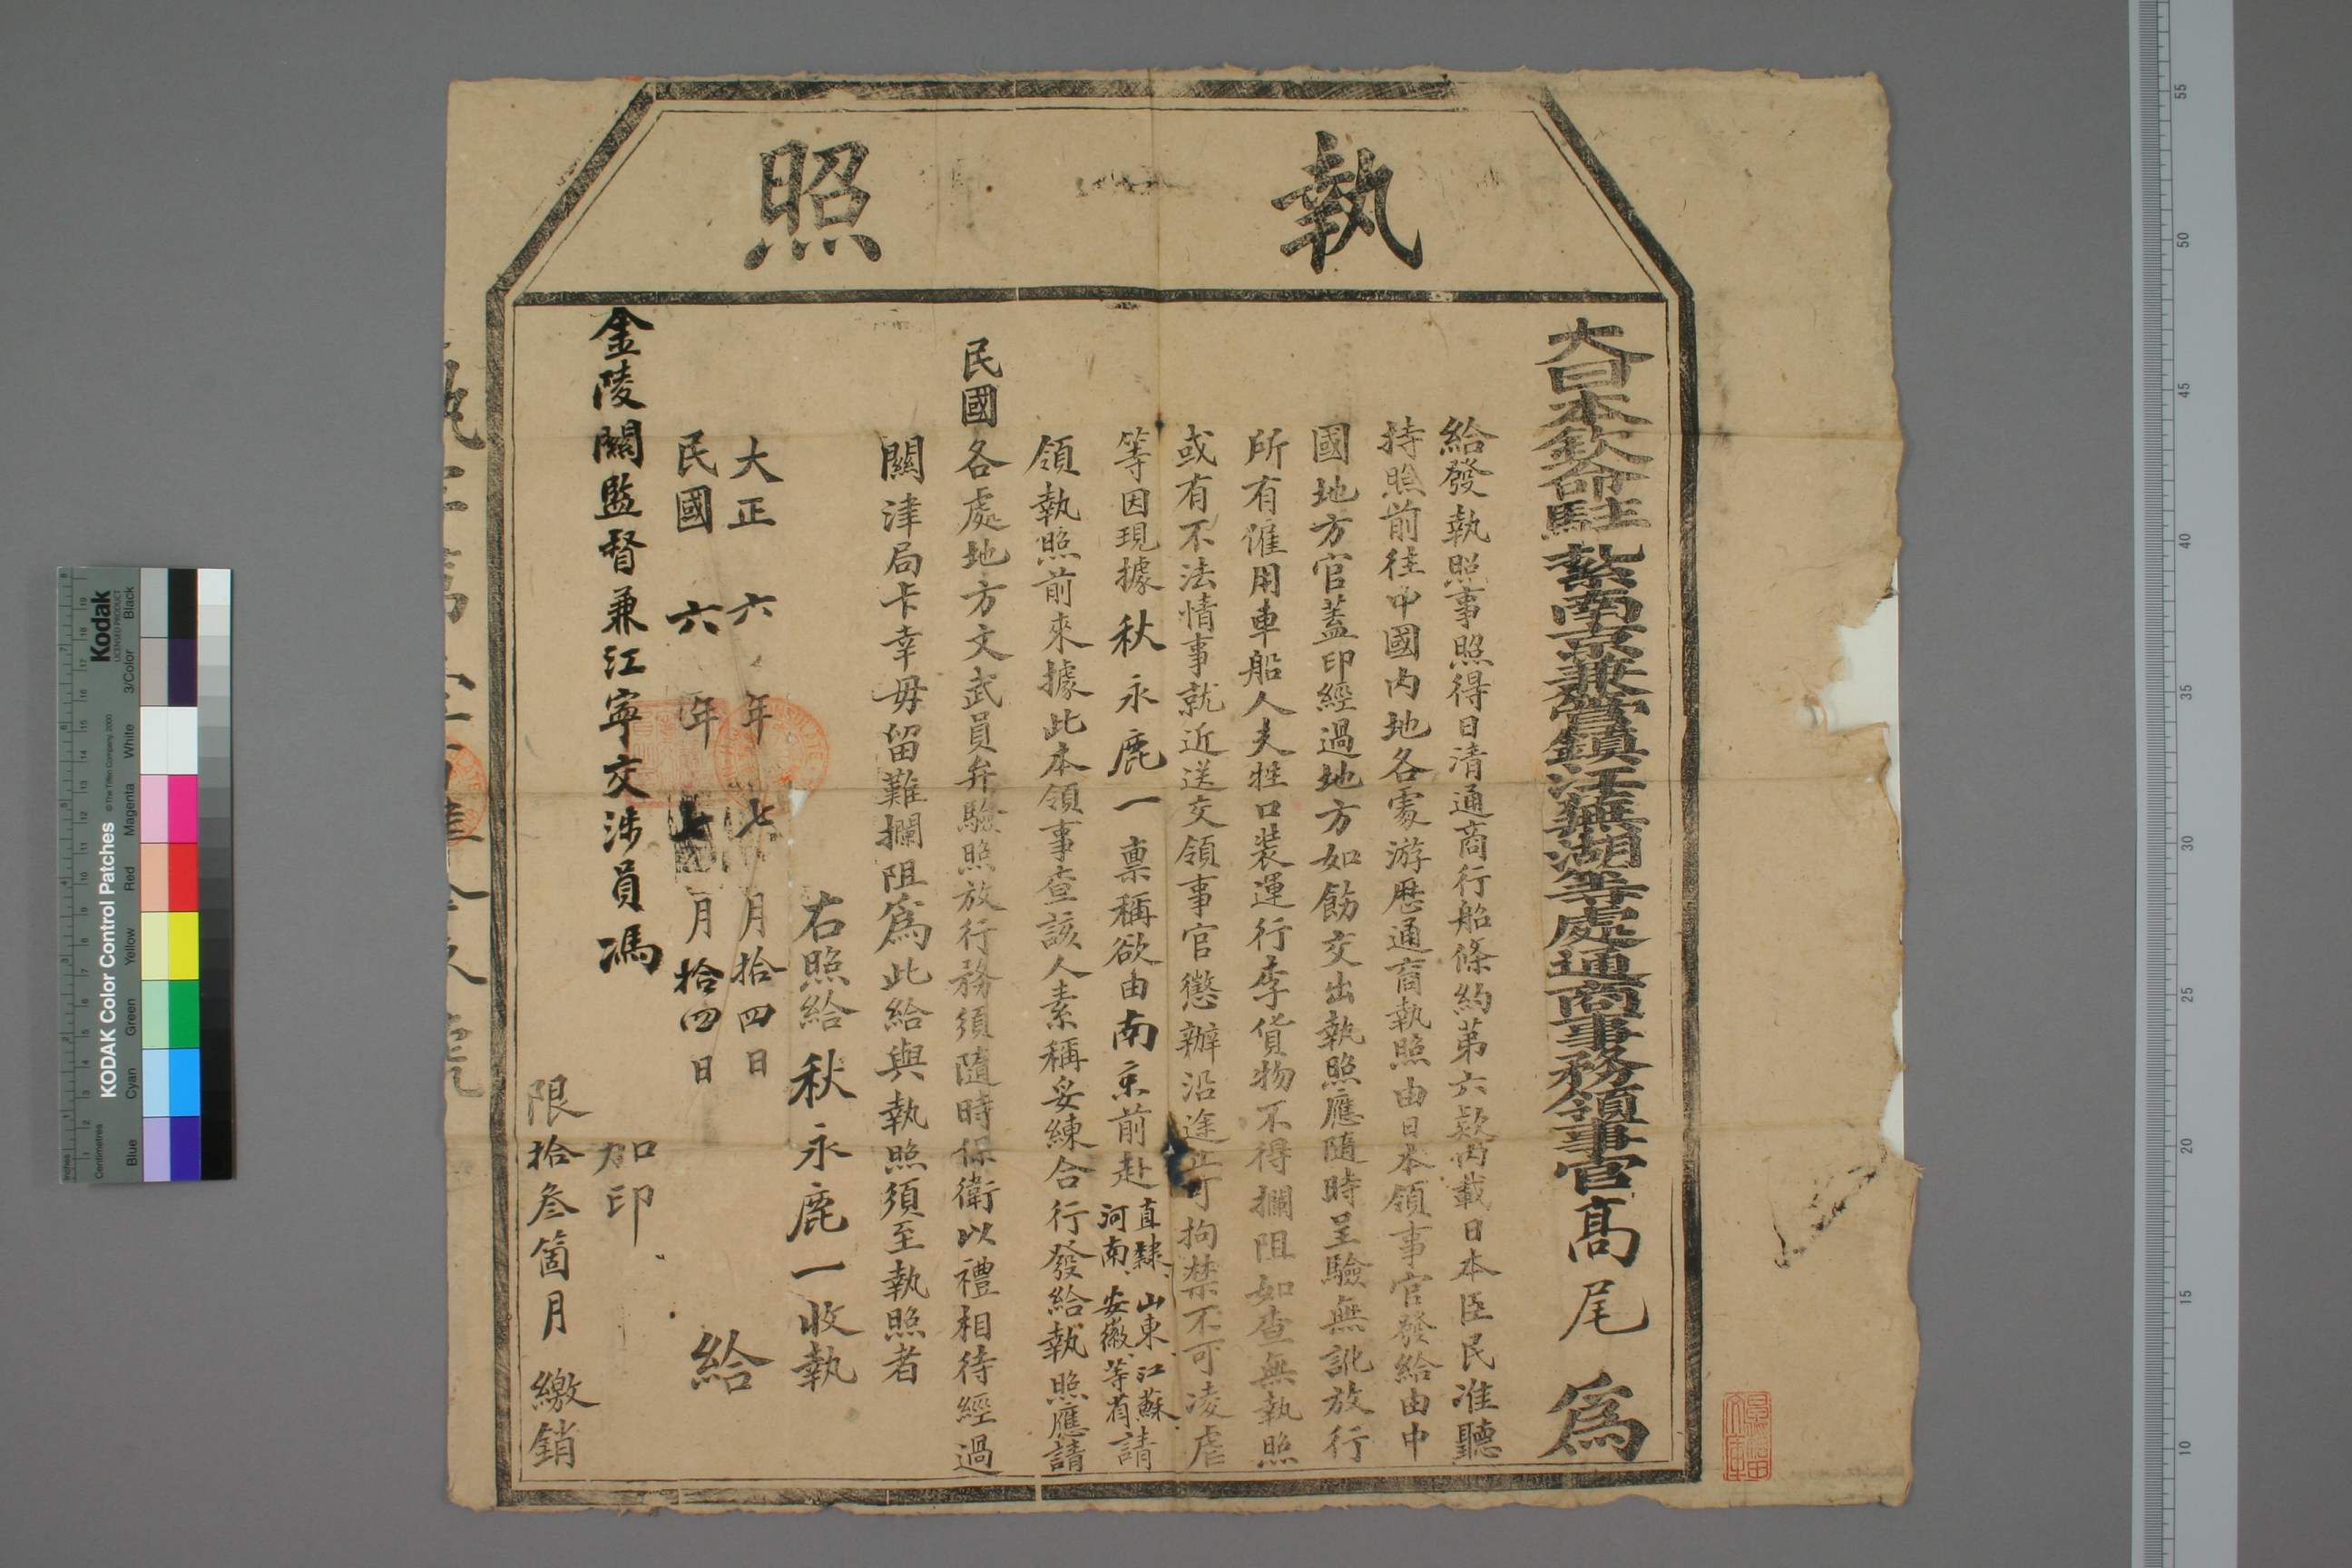 執照
大日本欽命駐紮南京兼管鎮江蕪湖等處通商事務領事官高尾 為
給發執照事照得日清通商行船條約第六款內載日本臣民准聽
持照前往中國內地各處游歷通商執照由日本領事官發給由中
國地方官蓋印經過地方如飭交出執照應隨時呈驗無訛放行
所有僱用車船人夫牲口裝運行李貨物不得攔阻如查無執照
或有不法情事就近送交領事官懲辦沿途止可拘禁不可凌虐
等因現據秋永鹿一稟稱欲由南京前赴直隸、山東、江蘇、河南、安徽、等省請
領執照前來據此本領事查該人素稱妥練合行發給執照應請
民國各處地方文武員弁驗照放行務須隨時保衛以禮相待經過
關津局卡幸毋留難攔阻為此給與執照須至執照者
右照給秋永鹿一收執
大正六年七月拾四日
民國六年七月拾四日
給
金陵關監督兼江寧交涉員馮
加印
限拾叁箇月繳銷
Kodak
LICENSED PRODUCT
KODAK Color Control Patches
© The Tiffen Company, 2000
Blue Cyan Green Yellow Red Magenta White 3/Color Black
Centimetres
Inches
55
50
45
40
35
30
25
20
15
10